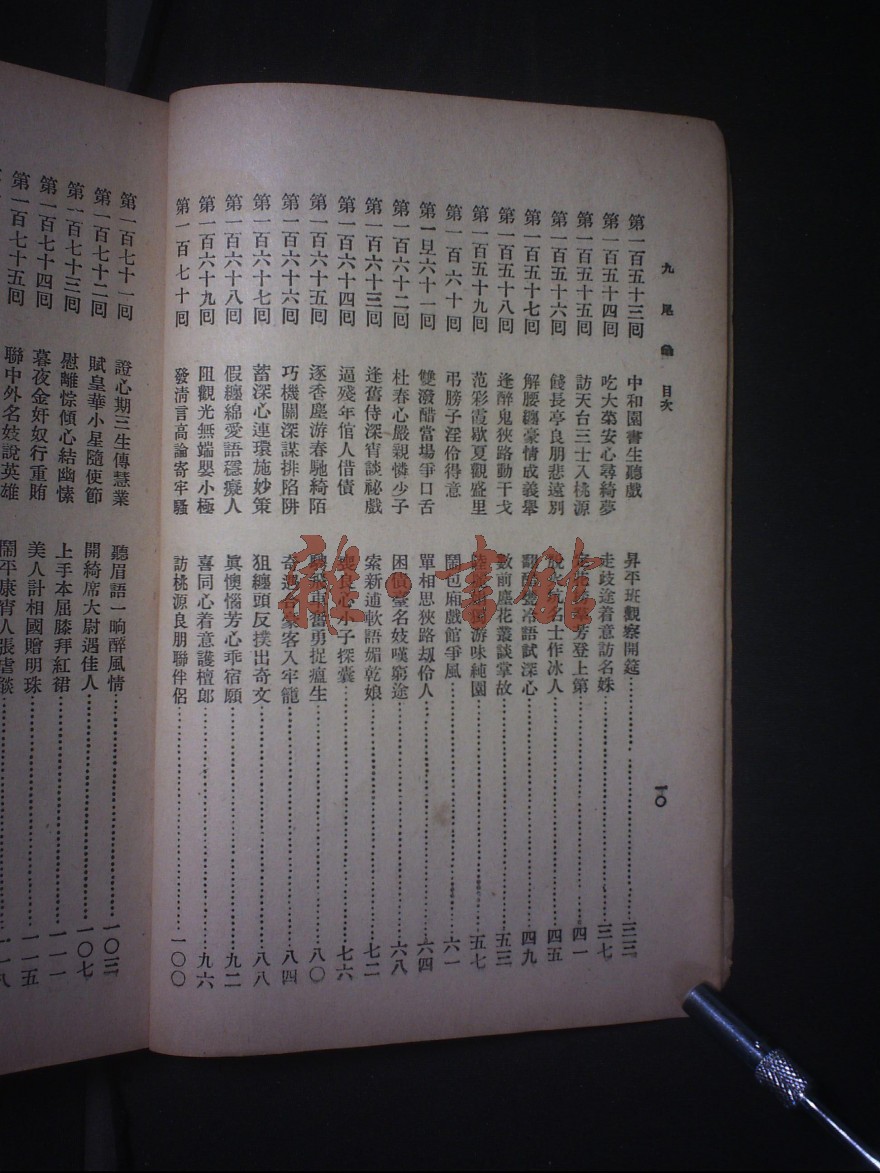 九尾龜 目次
一〇
第一百五十三回 中和園書生聽戲 昇平班觀察開筵 三三
第一百五十四回 吃大菜安心尋綺夢 走歧途着意訪名姝 三七
第一百五十五回 訪天台三士入桃源 羣芳登上第 四一
第一百五十六回 餞長亭良朋悲遠別 名士作冰人 四五
第一百五十七回 解腰纏豪情成義舉 冷語試深心 四九
第一百五十八回 逢醉鬼狹路動干戈 數前塵花叢談掌故 五三
第一百五十九回 范彩霞歇夏觀盛里 游味純園 五七
第一百六十回 弔膀子淫伶得意 鬧包廂戲館爭風 六一
第一旦六十一回 雙潑醋當場爭口舌 單相思狹路刼伶人 六四
第一百六十二回 杜春心嚴親憐少子 困債臺名妓嘆窮途 六八
第一百六十三回 逢舊侍深宵談祕戲 索新逋軟語媚乾娘 七二
第一百六十四回 逼殘年倌人借債 喪良心小子探囊 七六
第一百六十五回 逐香塵游春馳綺陌 奮勇捉瘟生 八〇
第一百六十六回 巧機關深謀排陷阱 奇遇合豪客入牢籠 八四
第一百六十七回 蓄深心連環施妙策 狙纏頭反撲出奇文 八八
第一百六十八回 假纏綿愛語穩癡人 眞懊惱芳心乖宿願 九二
第一百六十九回 阻觀光無端嬰小極 喜同心着意護檀郎 九六
第一百七十回 發清言高論寄牢騷 訪桃源良朋聯伴侶 一〇〇
第一百七十一回 證心期三生傳慧業 聽眉語一晌醉風情 一〇三
第一百七十二回 賦皇華小星隨使節 開綺席大尉遇佳人 一〇七
第一百七十三回 慰離悰傾心結幽愫 上手本屈膝拜紅裙 一一一
第一百七十四回 暮夜金奸奴行重賄 美人計相國贈明珠 一一五
第一百七十五回 聯中外名妓說英雄 鬧平康宵人張虐燄 一一八
雜·書館